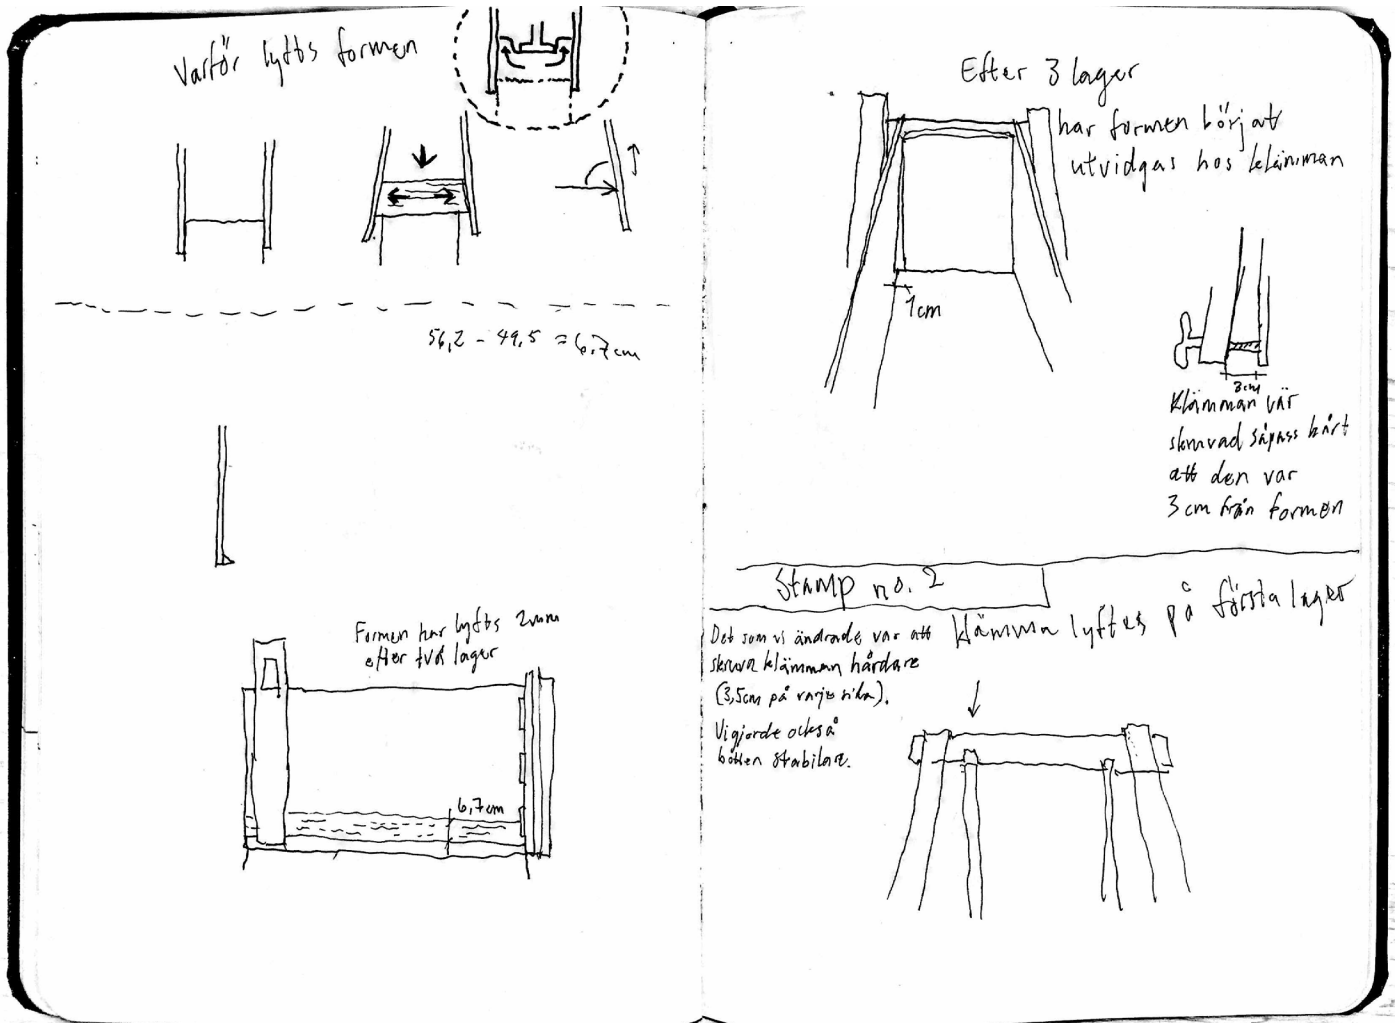 Varför lyfts formen
56,2 - 49,5 = 6,7cm
Formen har lyfts 2mm
efter två lager
6,7cm
Efter 3 lager
har formen börjat
utvidgas hos klämman
1cm
3cm
Klämman var
skruvad såpass hårt
att den var
3 cm från formen
Stamp no. 2
Klämma lyftes på första lager
Det som vi ändrade var att
skruva klämman hårdare
(3,5cm på varje sida).
Vi gjorde också
botten stabilare.